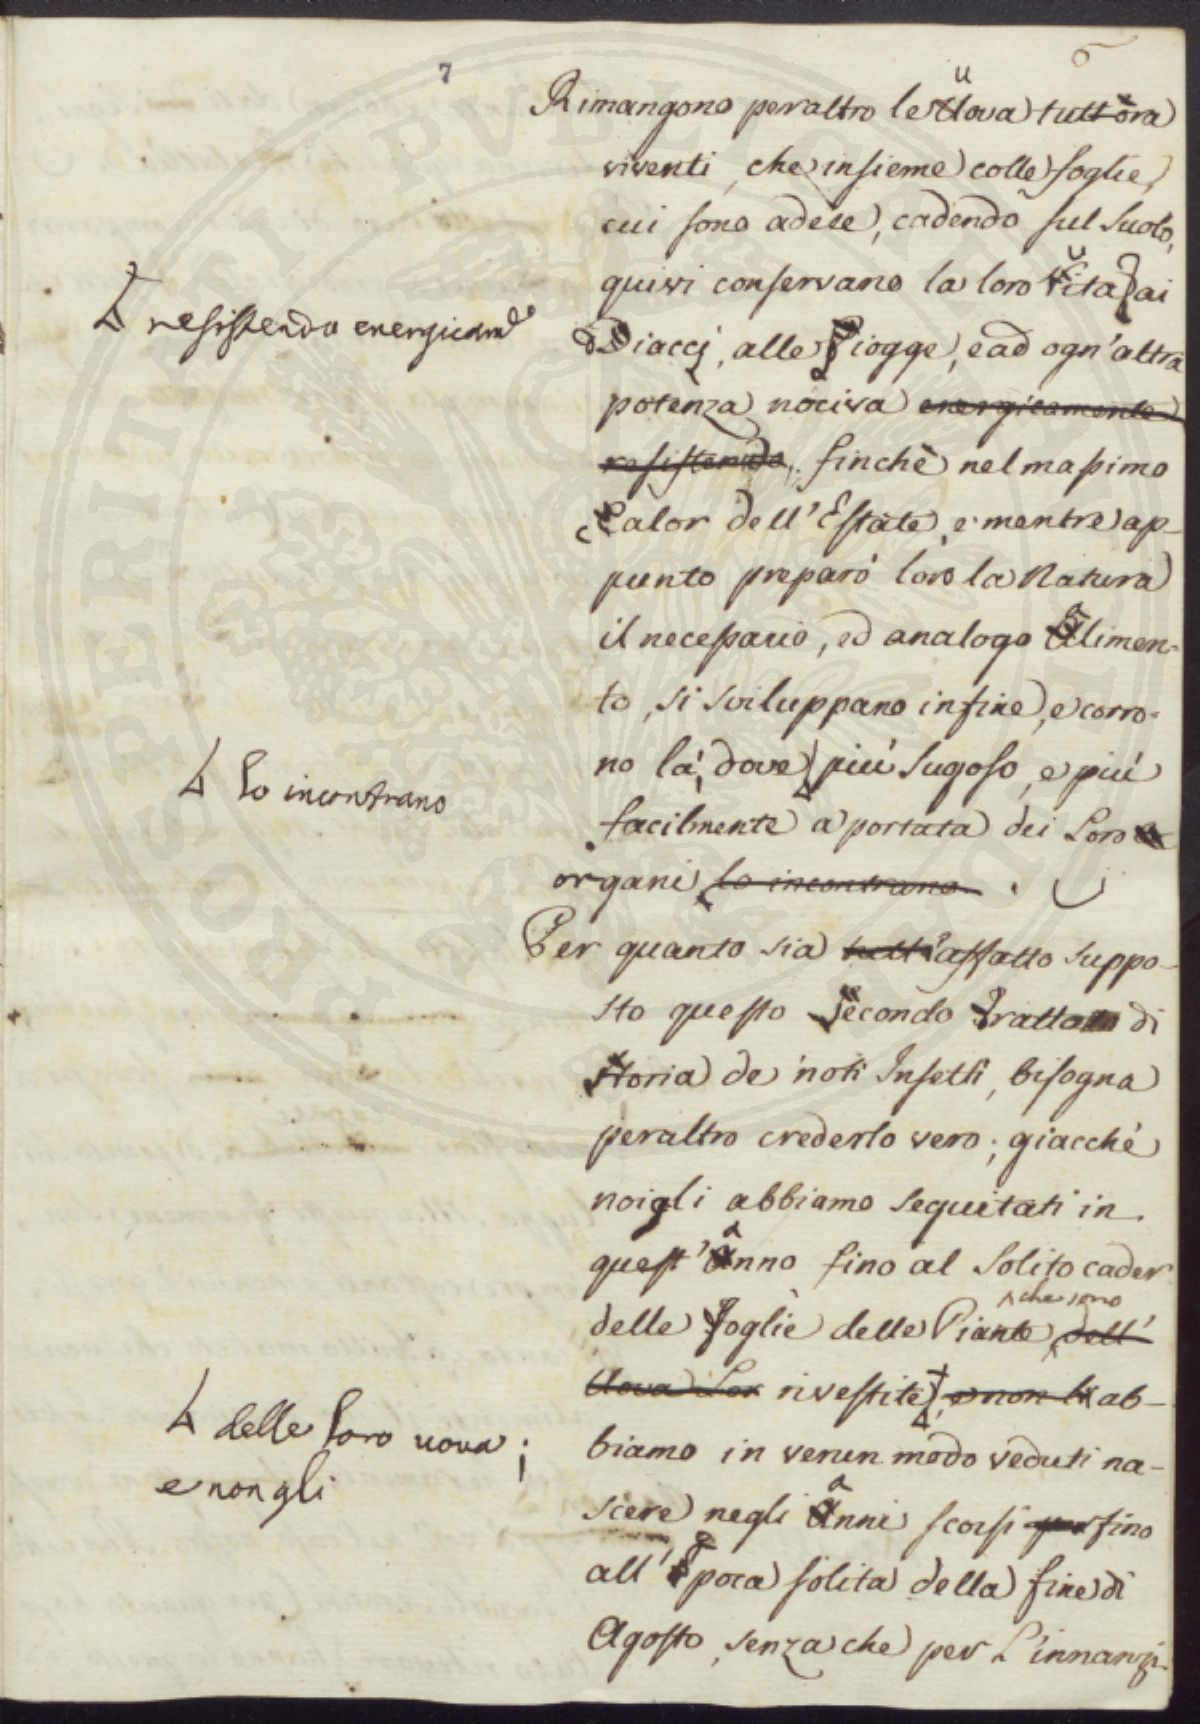 7
6
Rimangono peraltro le uova tuttora
viventi, che insieme colle foglie,
cui sono adese, cadendo sul Suolo,
quivi conservano la loro vita ai
diacci, alle piogge, e ad ogn'altra
resistendo energicamde
potenza nociva energicamente
resistendo, finchè nel massimo
calor dell'Estate, e mentre ap-
punto preparò loro la Natura
il necessario, ed analogo alimen-
to, si sviluppano infine, e corro-
no là, dove più Sugoso, e più
lo incontrano
facilmente a portata dei Loro
organi lo incontrano.
Per quanto sia tutt'affatto suppo-
sto questo secondo tratto di
storia de' noti Insetti, bisogna
peraltro crederlo vero; giacchè
noi gli abbiamo seguitati in
quest'anno fino al Solito cader
che sono
delle foglie delle Piante, dell'
Uova Lor rivestite, e non li ab-
delle loro uova;
e non gli
biamo in verun modo veduti na-
scere negli anni scorsi per fino
all'epoca solita della fine di
Agosto, senza che per L'innanzi